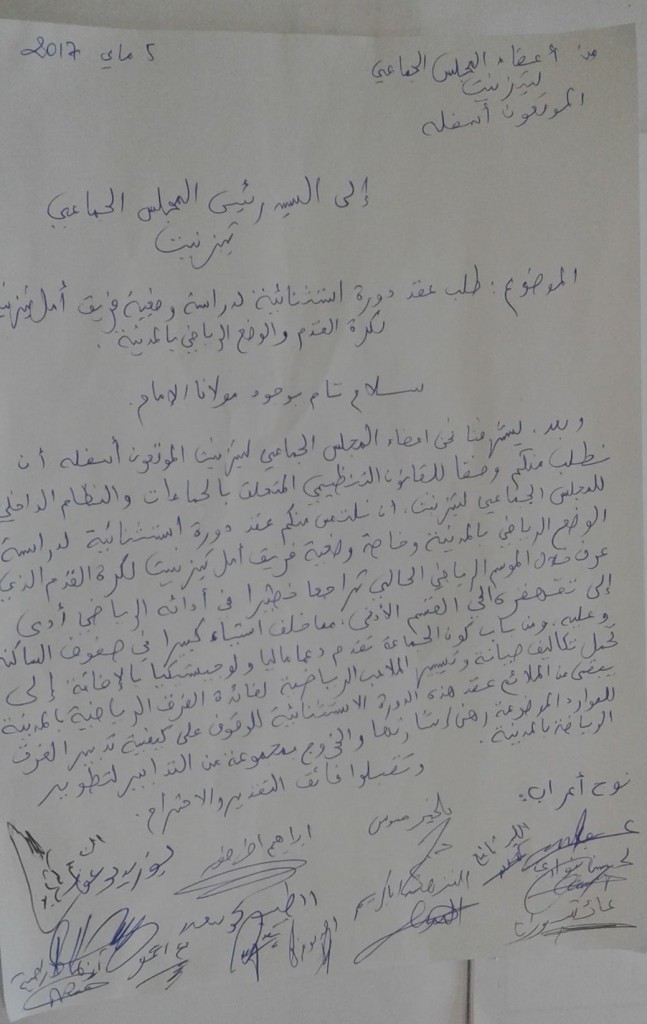 5 ماي 2017
من أعضاء المجلس الجماعي
لتيزنيت
الموقعون أسفله
إلى السيد رئيس المجلس الجماعي
تيزنيت
الموضوع: طلب عقد دورة استثنائية لدراسة وضعية فريق أمل تيزنيت
لكرة القدم والوضع الرياضي بالمدينة.
سلام تام بوجود مولانا الإمام.
وبعد، يشرفنا نحن أعضاء المجلس الجماعي لتيزنيت الموقعون أسفله أن
نطلب منكم وفقا للقانون التنظيمي المتعلق بالجماعات والنظام الداخلي
للمجلس الجماعي لتيزنيت، أن نلتمس منكم عقد دورة استثنائية لدراسة
الوضع الرياضي بالمدينة وخاصة وضعية فريق أمل تيزنيت لكرة القدم الذي
عرف خلال الموسم الرياضي الحالي تراجعا خطيرا في أدائه الرياضي أدى
إلى تقهقره إلى القسم الأدنى، مما خلف استياء كبيرا في صفوف الساكنة
وعليه، ومن باب كون الجماعة تقدم دعما ماليا ولوجيستيكيا بالإضافة إلى
تحمل تكاليف صيانة وتسيير الملاعب الرياضية لفائدة الفرق الرياضية بالمدينة
من الملائم عقد هذه الدورة الاستثنائية للوقوف على كيفية تدبير الفرق
للموارد الموضوعة رهن إشارتها والخروج بمجموعة من التدابير لتطوير
الرياضة بالمدينة.
وتقبلوا فائق التقدير والاحترام.
نوح أعراب:
ابراهيم